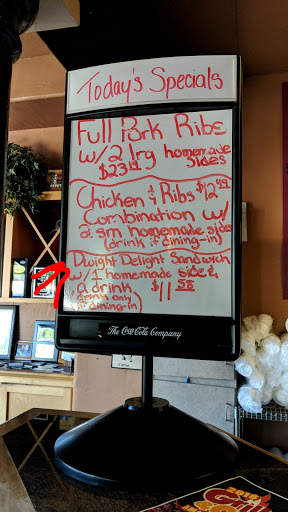 Today's Specials
Full Pork Ribs
w/2 lrg homemade
$23.99 sides
Chicken & Ribs $12.99
Combination w/
2 sm homemade side
(drink if dining-in)
Dwight Delight Sandwich
w/1 homemade side &
a drink $11.58
(drink only
if dining-in)
The Coca-Cola Company
2016